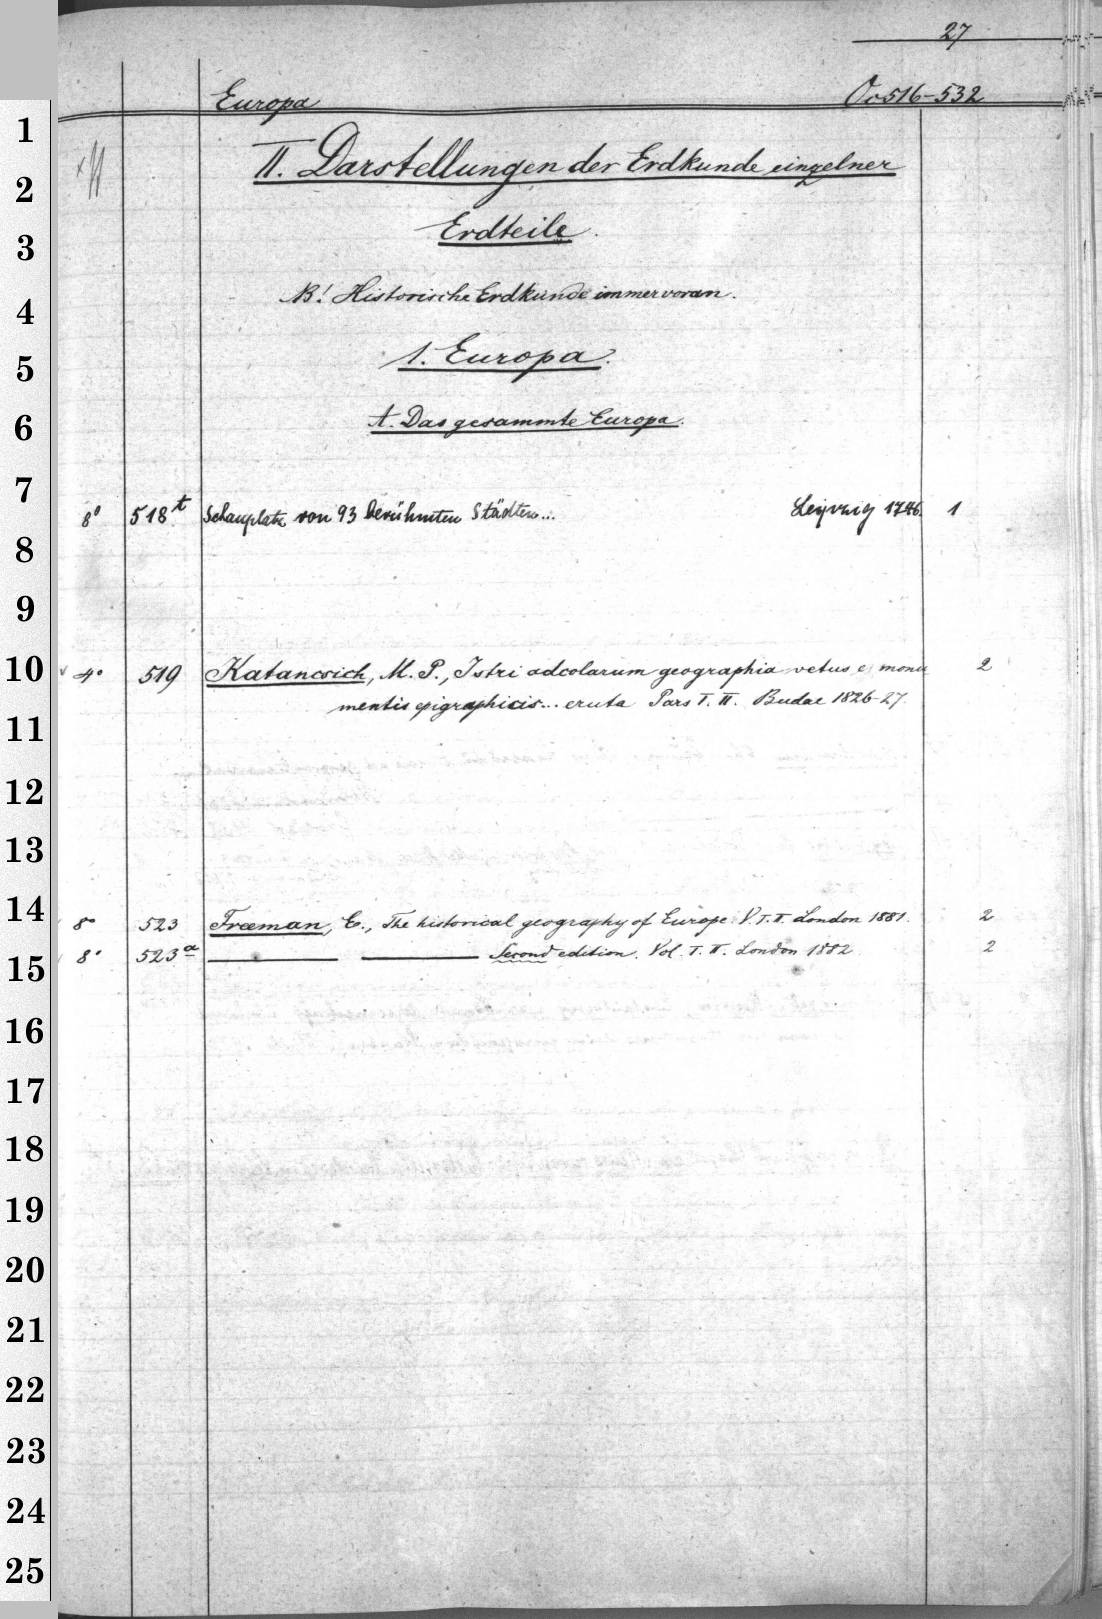 27
Europa Oo 516-532
II. Darstellungen der Erdkunde einzelner
Erdteile.
NB! Historische Erdkunde immer voran.
1. Europa.
A. Das gesammte Europa.
8° 518t Schauplatz von 93 berühmten Städten... Leipzig 1746. 1
4° 519 Katancsich, M. P., Istri adcolarum geographia vetus e monu 2
mentis epigraphicis... eruta Pars I. II. Budae 1826-27.
8° 523 Freeman, E., The historical geography of Europe. V. I. II. London 1881. 2
8° 523a Second edition. Vol. I. II. London 1882. 2
1
2
3
4
5
6
7
8
9
10
11
12
13
14
15
16
17
18
19
20
21
22
23
24
25